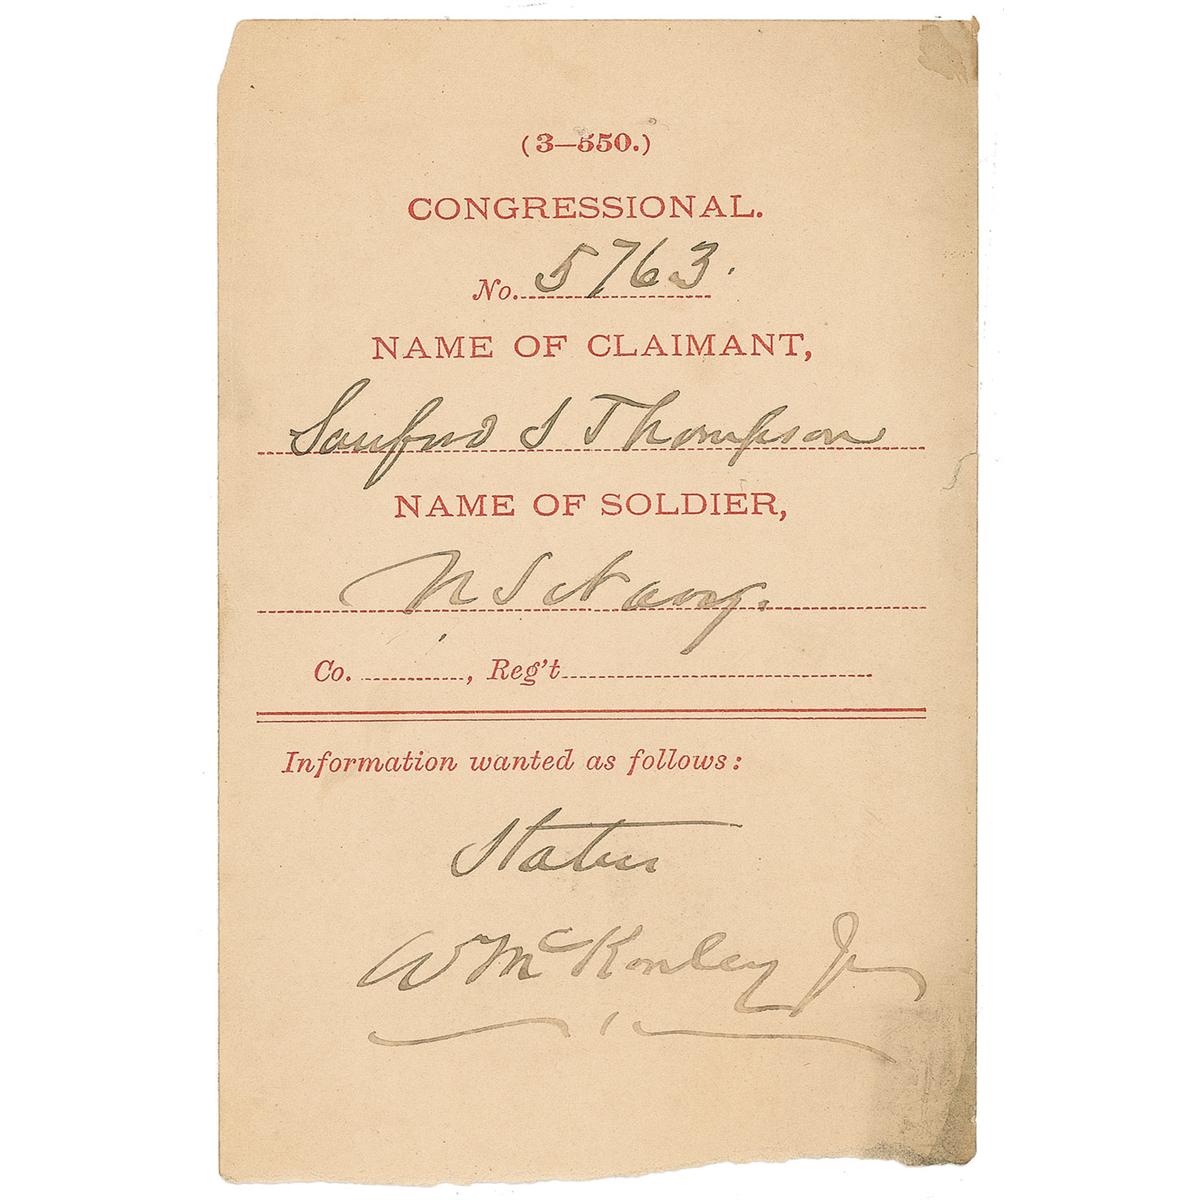 (3—550.)
CONGRESSIONAL.
No. 5763.
NAME OF CLAIMANT,
Sanford S Thompson
NAME OF SOLDIER,
U S Navy.
Co. , Reg't
Information wanted as follows:
Status
W McKinley Jr